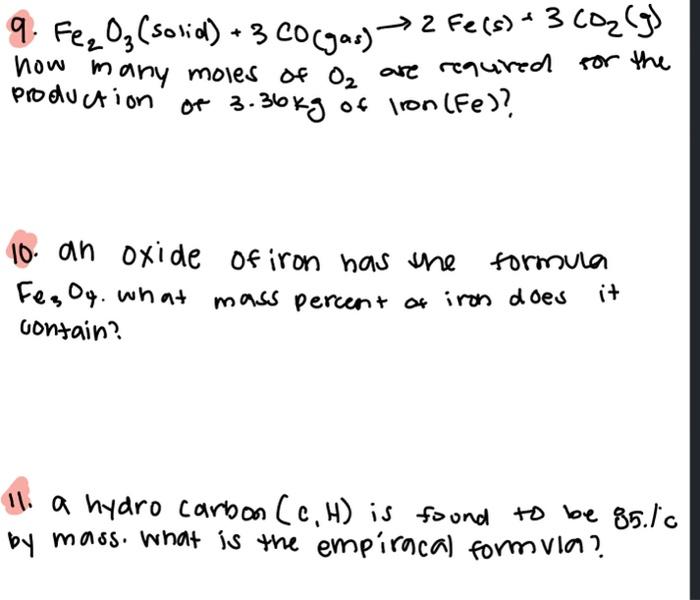 9. Fe₂O₃(solid) + 3 CO(gas) → 2 Fe(s) + 3 CO₂(g)
how many moles of O₂ are required for the
production of 3.36kg of Iron (Fe)?
10. an oxide of iron has the formula
Fe₃O₄. what mass percent of iron does it
contain?
11. a hydro carbon (C, H) is found to be 85.%C
by mass. what is the empiracal formula?